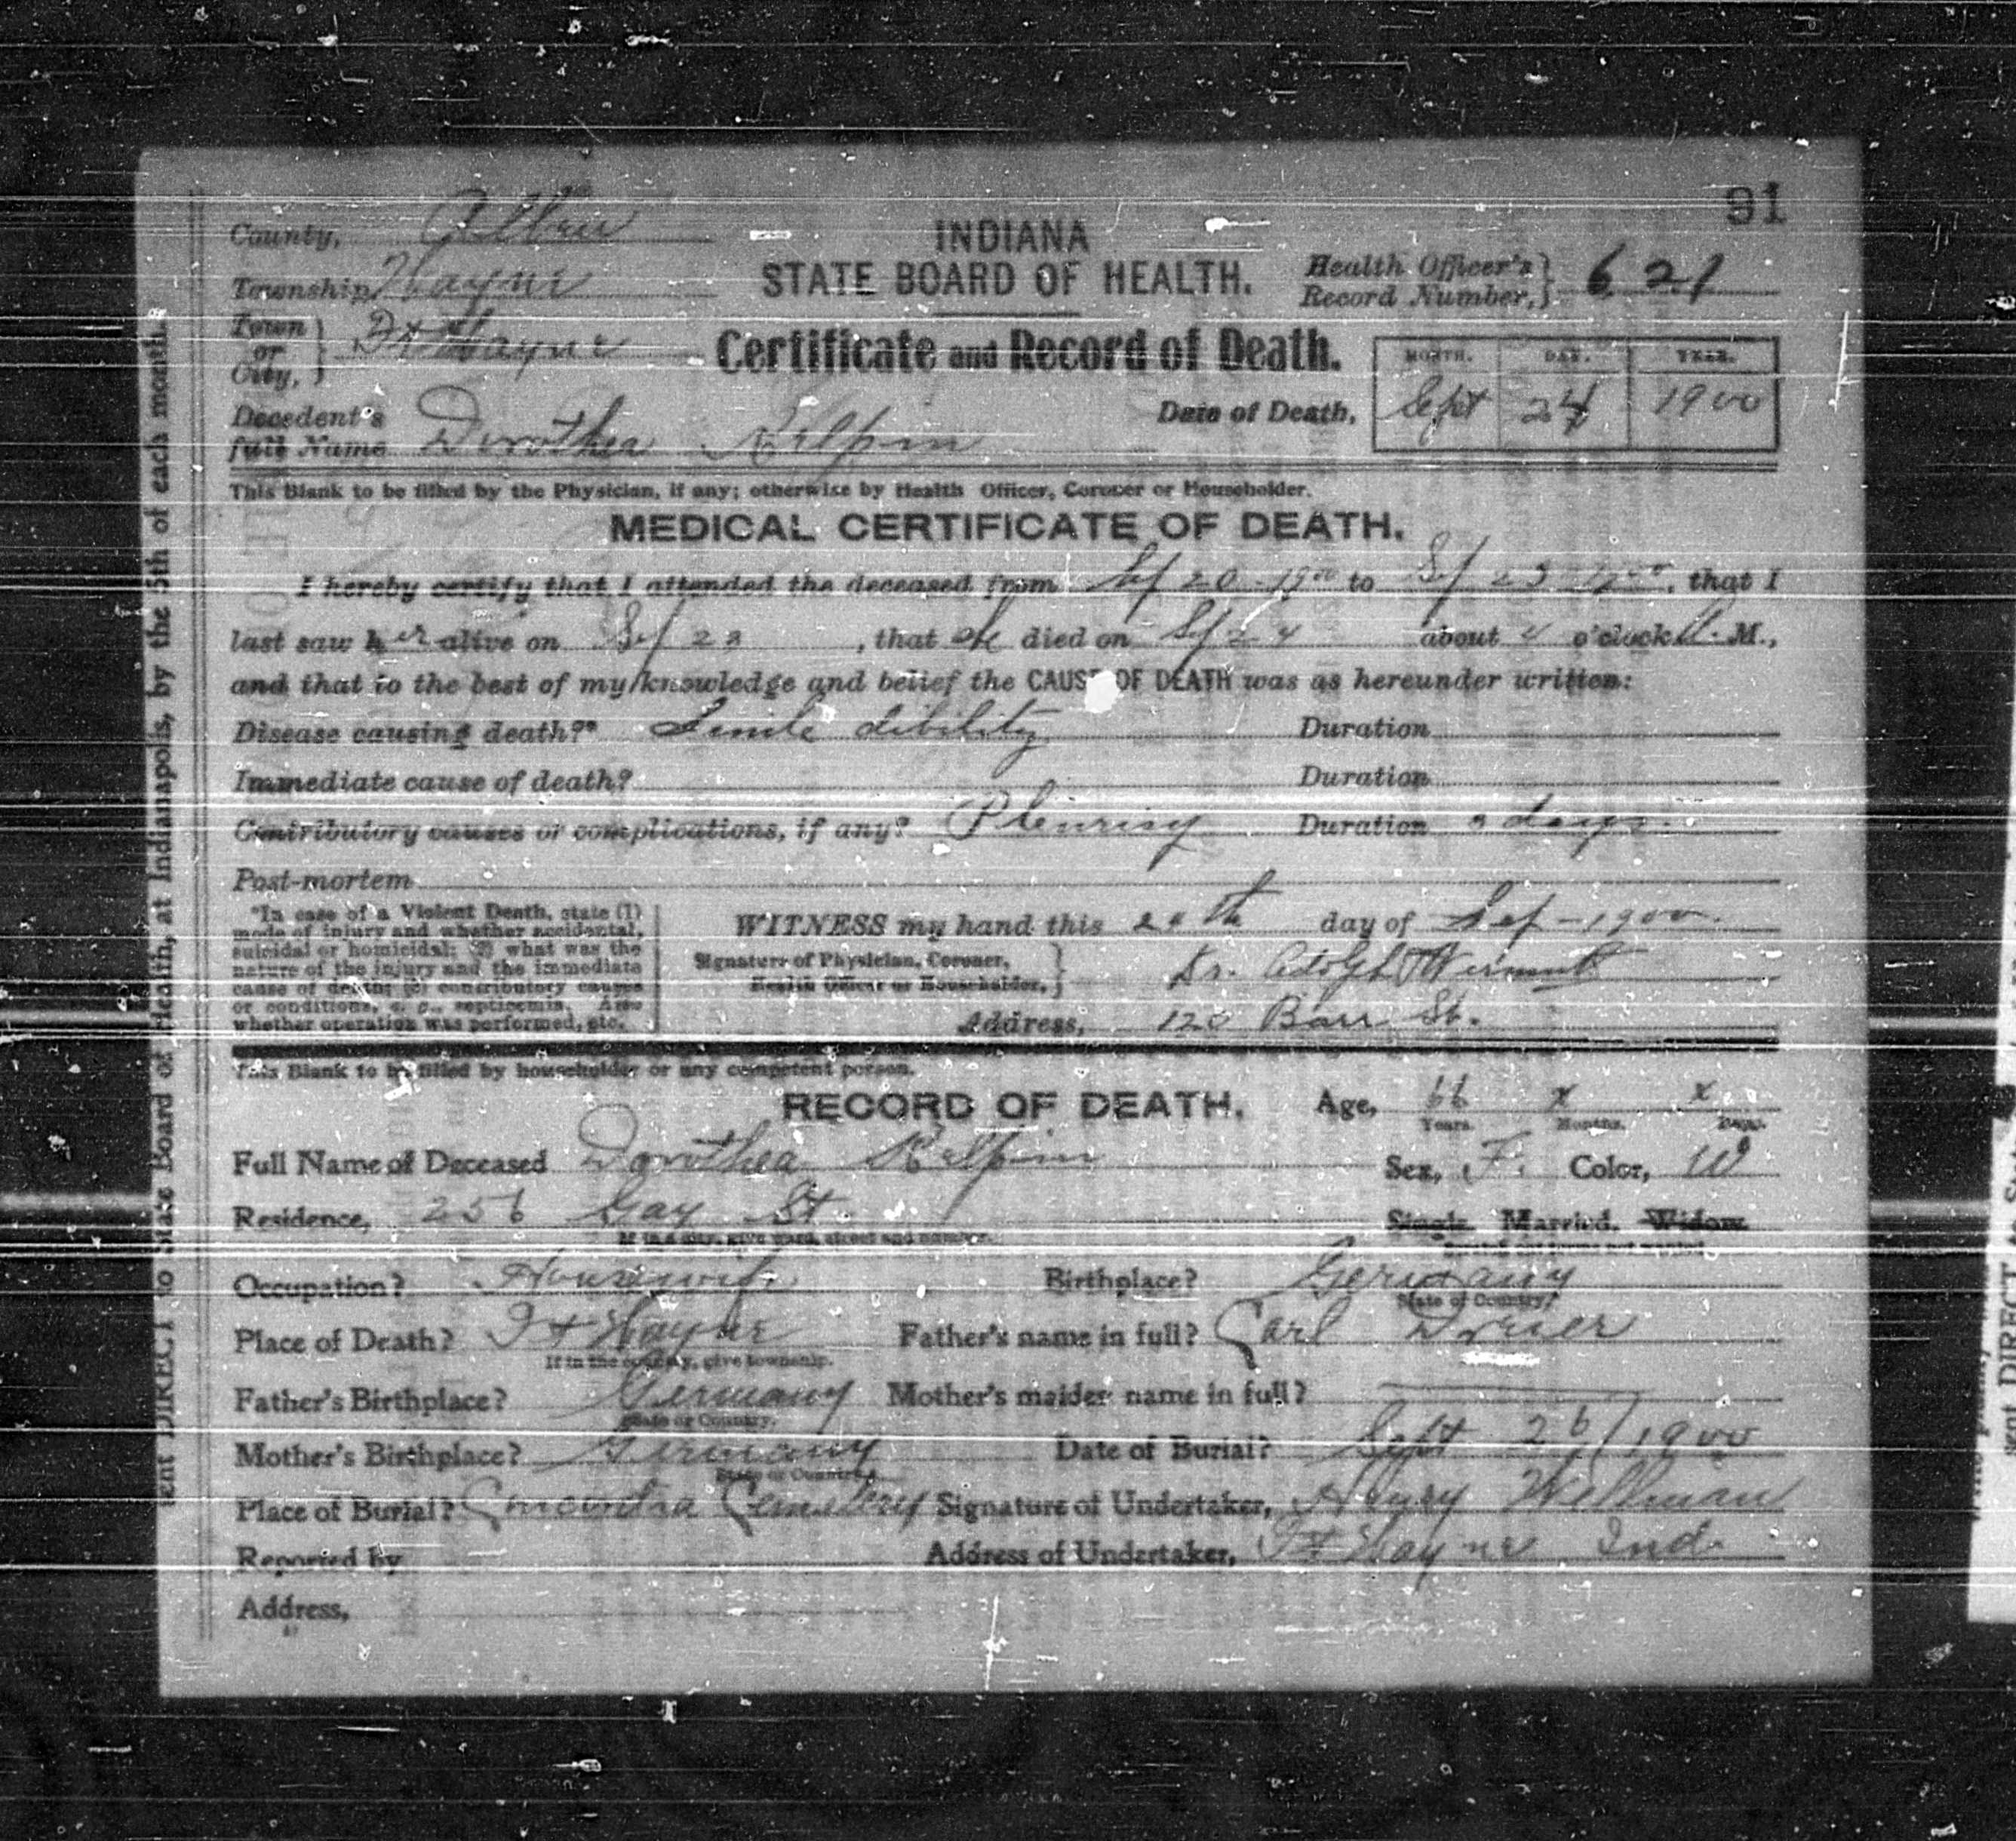 91
County, Allen
INDIANA
STATE BOARD OF HEALTH.
Township Wayne
Health Officer's Record Number, 621
Town or City, Ft Wayne
Certificate and Record of Death.
MONTH. DAY. YEAR.
Decedent's full Name Dorothea Kelpin
Date of Death, Sept 24 1900
This Blank to be filled by the Physician, if any; otherwise by Health Officer, Coroner or Householder.
MEDICAL CERTIFICATE OF DEATH.
I hereby certify that I attended the deceased from Sep 20 - 1900 to Sep 23 1900, that I
last saw her alive on Sep 23, that she died on Sep 24 about 4 o'clock A. M.,
and that to the best of my knowledge and belief the CAUSE OF DEATH was as hereunder written:
Disease causing death?* Senile dibility Duration
Immediate cause of death? Duration
Contributory causes or complications, if any? Pleurisy Duration days.
Post-mortem
*In case of a Violent Death, state (1)
mode of injury and whether accidental,
suicidal or homicidal; (2) what was the
nature of the injury and the immediate
cause of death; (3) contributory causes
or conditions, e. g., septicemia. Also
whether operation was performed, etc.
WITNESS my hand this th day of Sep - 1900.
Signature of Physician, Coroner,
Health Officer or Householder,
Dr. Adolph
Address, 120 Barr St.
This Blank to be filled by householder or any competent person.
RECORD OF DEATH. Age, 66 x x
Years. Months. Days.
Full Name of Deceased Dorothea Kelpin Sex, F. Color, W
Residence, 256 Gay St. Single. Married. Widow.
If in a city, give ward, street and number.
Occupation? Housewife Birthplace? Germany
State or Country.
Place of Death? Ft Wayne Father's name in full? Carl Drier
If in the country, give township.
Father's Birthplace? Germany Mother's maiden name in full?
State or Country.
Mother's Birthplace? Germany Date of Burial? Sept 26/1900
State or Country.
Place of Burial? Concordia Cemetery Signature of Undertaker, Henry Wellman
Reported by Address of Undertaker, Ft Wayne Ind.
Address,
sent DIRECT to State Board of Health, at Indianapolis, by the 5th of each month.